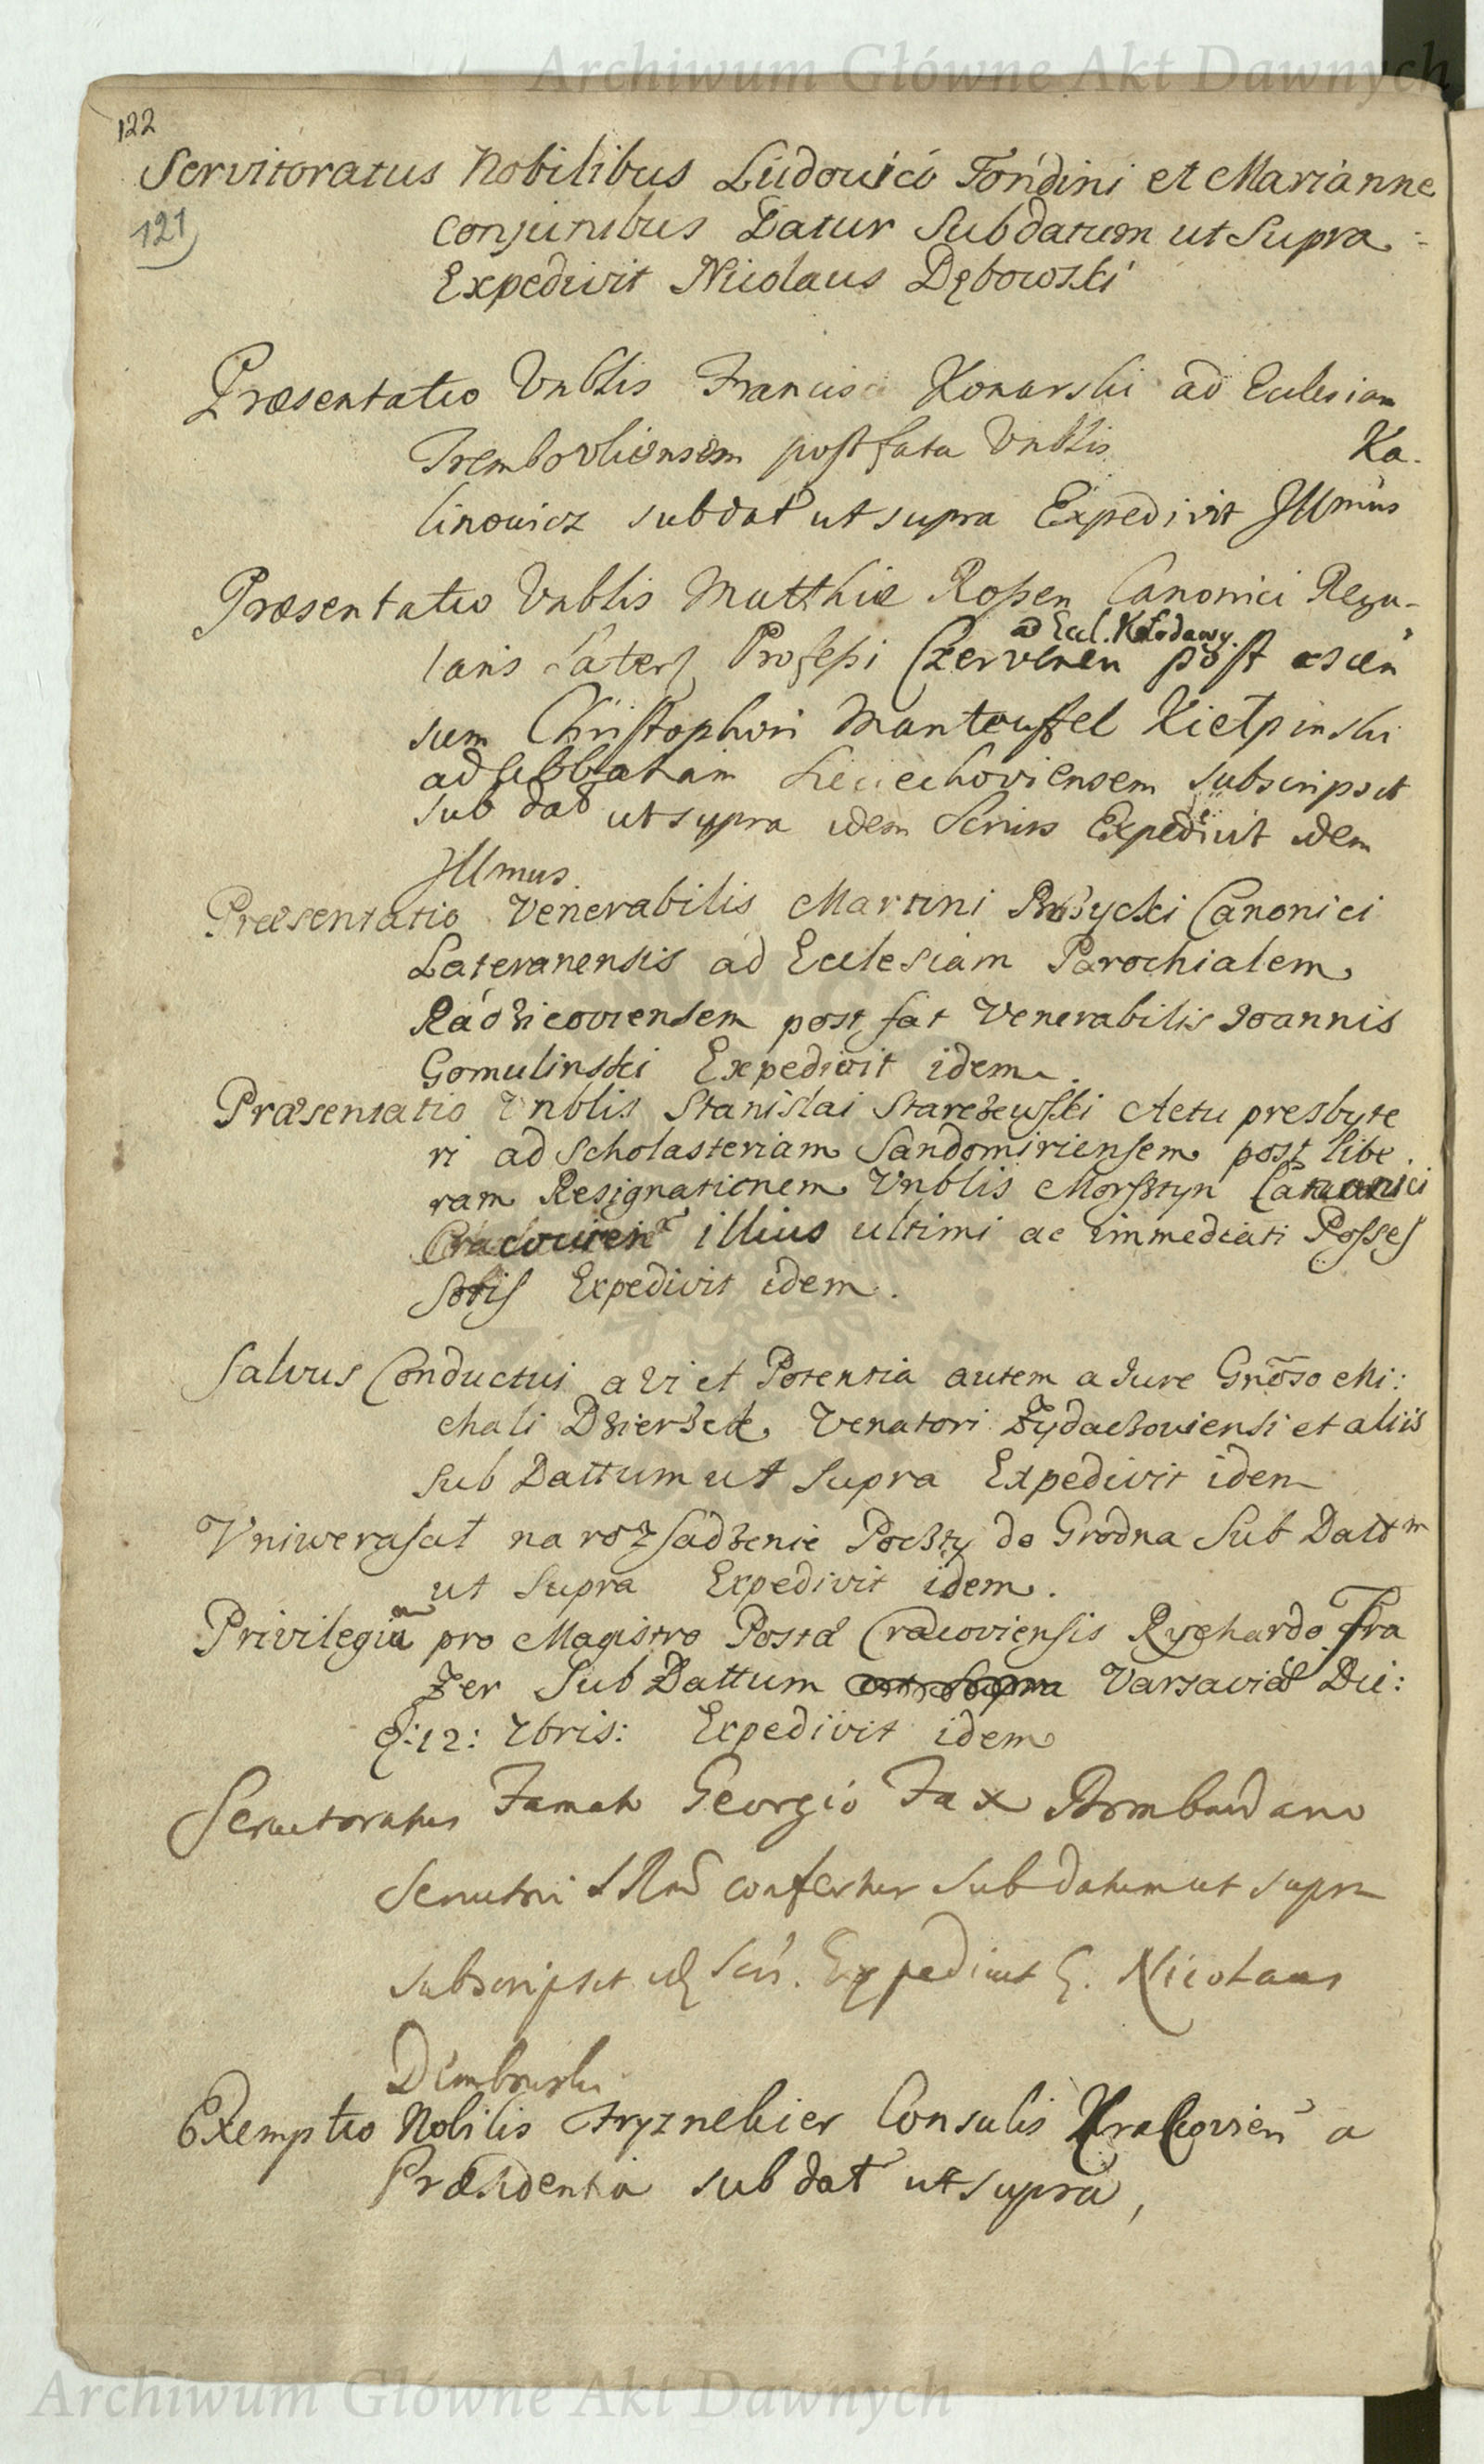 Archiwum Główne Akt Dawnych
122
Servitoratus Nobilibus Ludovico Fondini et Marianne
121
Conjunibus Datur Sub datum ut Supra
Expedivit Nicolaus Dębowski
Præsentatio Vnblis Francisci Konarski ad Ecclesiam
Trembovliensem post fata Vnblis Ka-
linowicz sub dat ut supra Expedivit Illmus
Præsentatio Vnblis Matthiæ Rossen Canonici Regu-
ad Eccl. Kłodawy.
laris Later Professi Czervenen post ascen
sum Christophori Manteuffel Kiełpinski
ad Abbatiam Sieciechoviensem subscripsit
sub dat ut supra idem Expedivit idem
Illmus.
Præsentatio Venerabilis Martini Canonici
Lateranensis ad Ecclesiam Parochialem
Radzicoviensem post fat Venerabilis Joannis
Gomulinski Expedivit idem.
Præsentatio Vnblis Stanislai Starczewski Actu presbyte
ri ad Scholasteriam Sandomiriensem post libe.
ram Resignationem Vnblis Morsztyn Canonici
Cracovien illius ultimi ac immediati Posses
soris Expedivit idem.
Salvus Conductus a vi et Potentia autem a Jure Gnoso Mi:
chali Dzierzek Venatori Zydaczoviensi et aliis
sub Dattum ut Supra Expedivit idem
Vniwerasał na rozsadzenie Poczty do Grodna Sub Datt m
ut Supra Expedivit idem.
Privilegium pro Magistro Postæ Cracoviensis Rychardo Fra
zer Sub Dattum Varsaviæ Die:
12: 7bris: Expedivit idem
Servitoratus Famato Georgio Fax Bombardario
confertur sub datum ut supra
subscripsit Expedivit G. Nicolaus
Dembowski
Exemptio Nobilis Fryznekier Consulis Krakovien a
Præsidentia sub dat ut supra,
Archiwum Główne Akt Dawnych